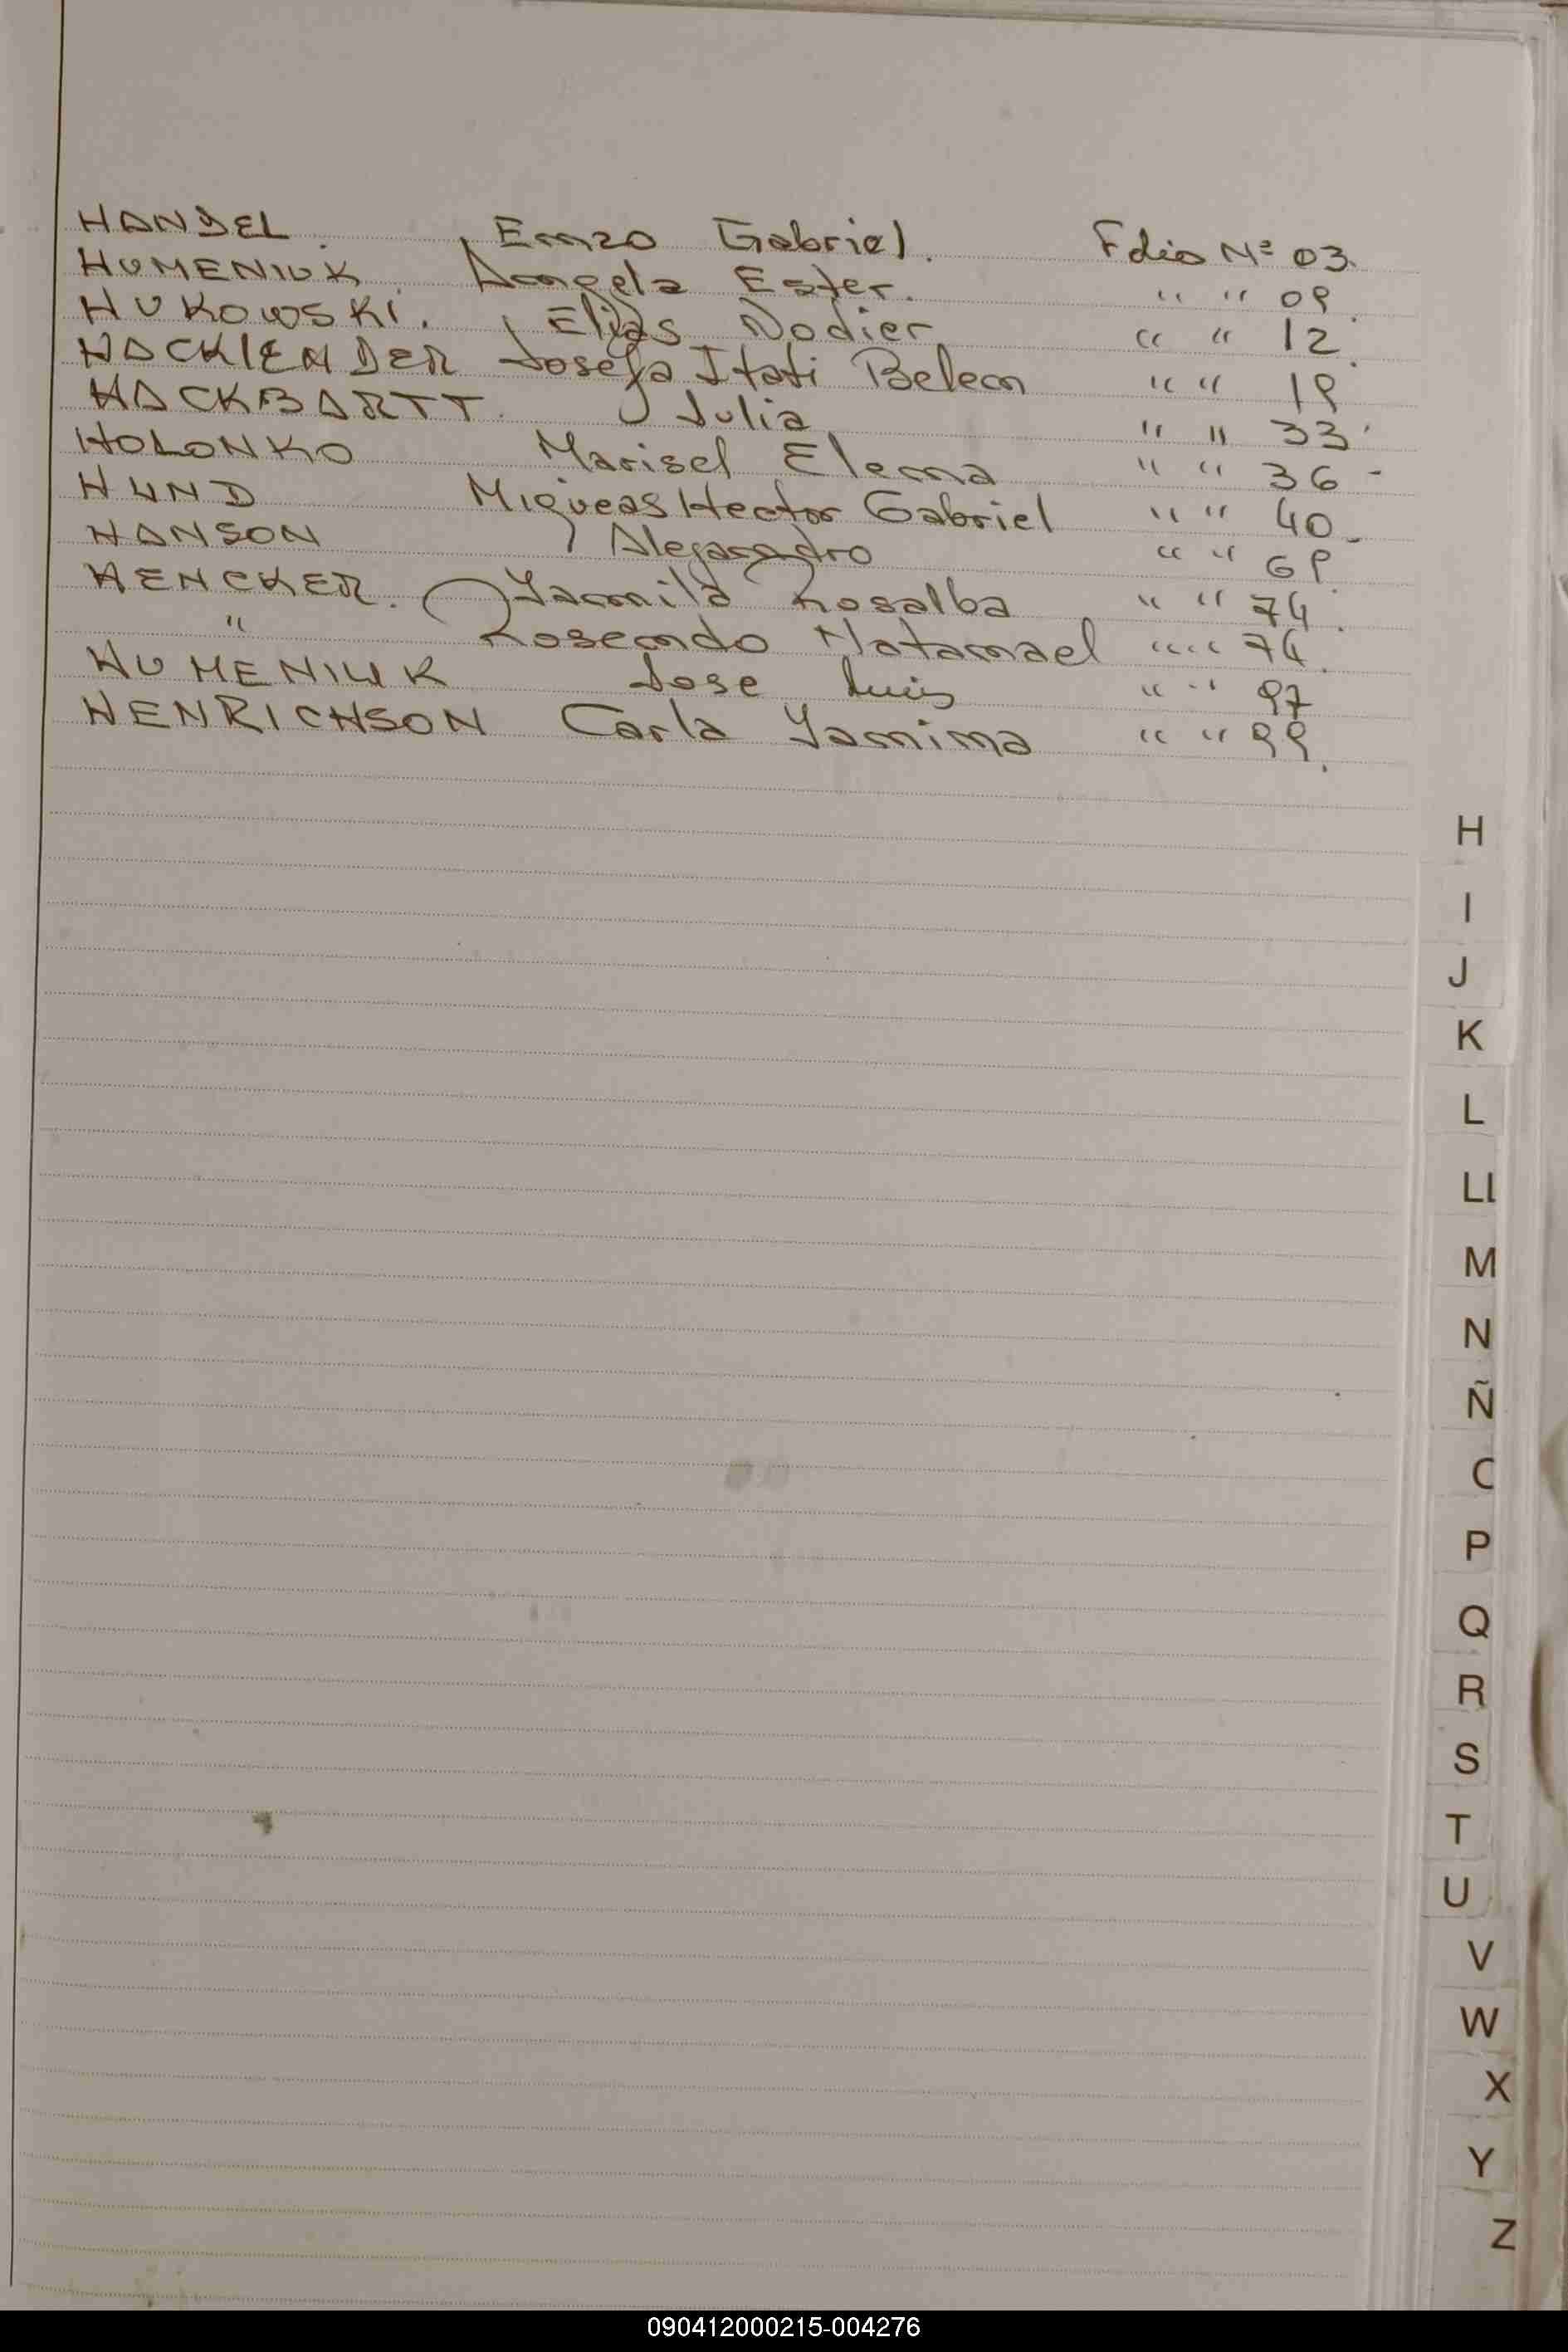 HANDEL. Enzo Gabriel. Folio Nº 03.
HUMENIUK. Angela Ester. " " 09.
HUKOWSKI. Elias Nodier " " 12.
HACKLENDER Josefa Itati Belen " " 19
HACKBARTT. Julia " " 33.
HOLONKO Marisel Elena " " 36-
HUND Miqueas Hector Gabriel " " 40-
HANSON Alejandro " " 69.
HENCKER. Yamila Rosalba " " 74.
" Rosendo Natanael " " 74.
HUMENIUK Jose Luis " " 97
HENRICHSON Carla Yamima " " 99.
H
I
J
K
L
LL
M
N
Ñ
O
P
Q
R
S
T
U
V
W
X
Y
Z
090412000215-004276